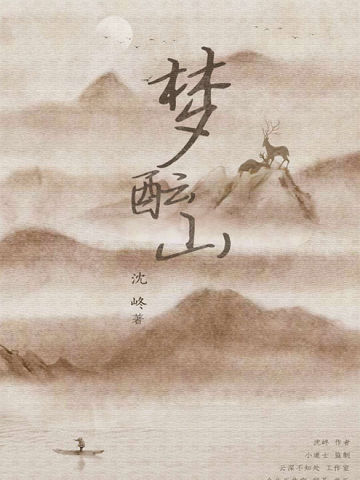 梦
酝
山
沈
峂
著
沈峂 作者
小道士 监制
云深不知处 工作室